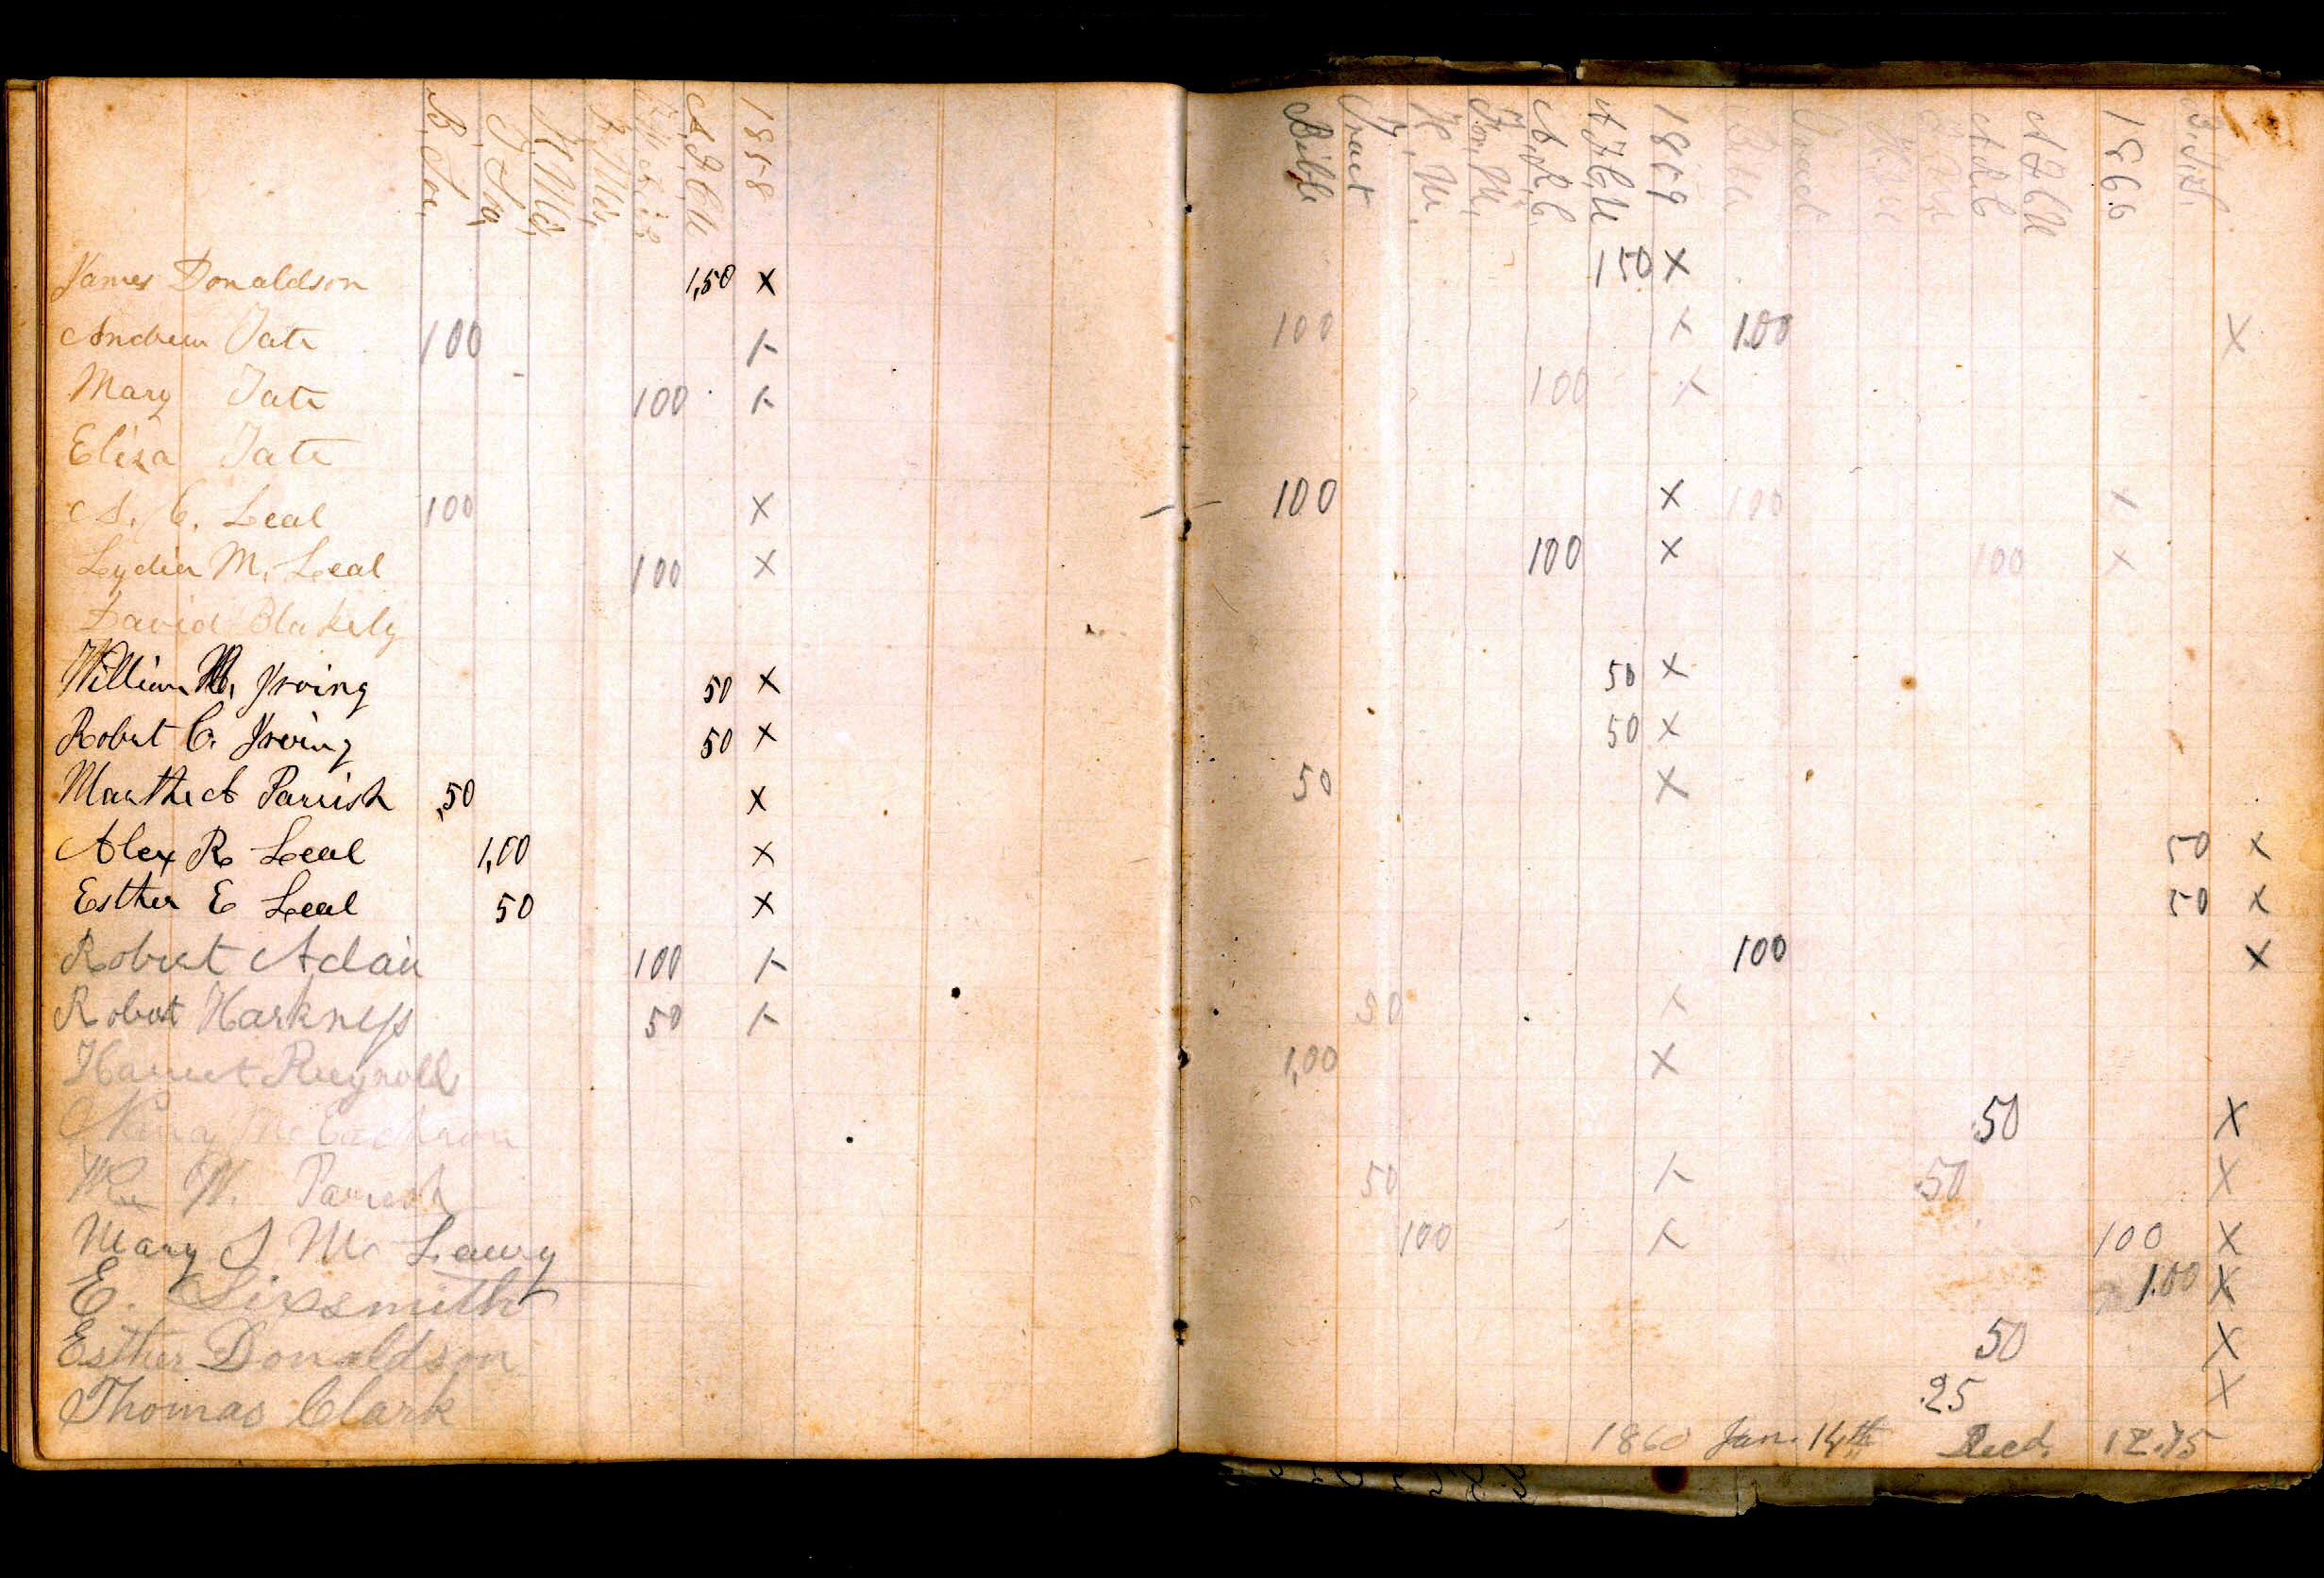 B. Soc.
T. So,
H. Mis,
F. Mis,
A, F, C, U
1858
Bible
Tract
H. M.
For. M.
A. & C.
A F C U
1859
Bible
Tract
A & C
A F C U
1860
James Donaldson 1,50 X 150 X
Andrew Tate 100 X 100 X 1.00 X
Mary Tate 100 X 100 X
Eliza Tate
A. C. Leal 100 X 100 X 100 X
Lydia M. Leal 100 X 100 X 100 X
David Blakely
William Irving 50 X 50 X
Robert C. Irving 50 X 50 X
Martha A Parrish ,50 X 50 X
Alex R Leal 1,00 X 50 X
Esther E Leal 50 X 50 X
Robert Adair 100 X 100 X
Robert Harkness 50 X 50 X
Harriet Reynolds 1,00 X
Nancy McEachron 50 X
W. Parrish 50 X .50 X
Mary J Mc Laury 100 X 100 X
E. Sixsmith 1.00 X
Esther Donaldson 50 X
Thomas Clark .25 X
1860 Jan. 14th Recd. 12.75